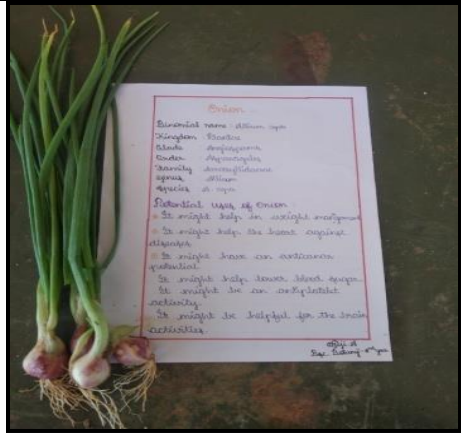 Onion
Binomial name : Allium cepa
Kingdom : Plantae
Clade : Angiosperms
Order : Asparagales
Family : Amaryllidaceae
Genus : Allium
Species : A. cepa
Potential Uses of Onion :
It might help in weight management
It might help the heart against
diseases
It might have an anticancer
potential
It might help lower blood sugar
It might be an antiplatelet
activity
It might be helpful for the brain
activities